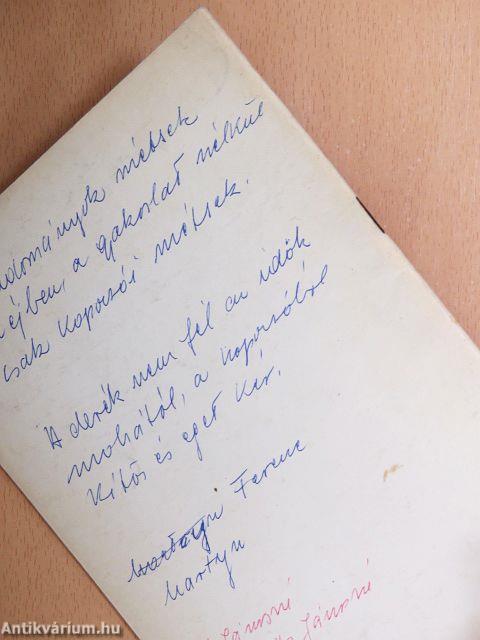 udományok méhsek
éjben, a gakorlat nélkül
csak koporsói méhsek.
"A derék nem fél az idők
mohától, a koporsóból
kitör és eget kér.
Martyn Ferenc
Martyn
Jánosné
Jánosné
Antikvárium.hu